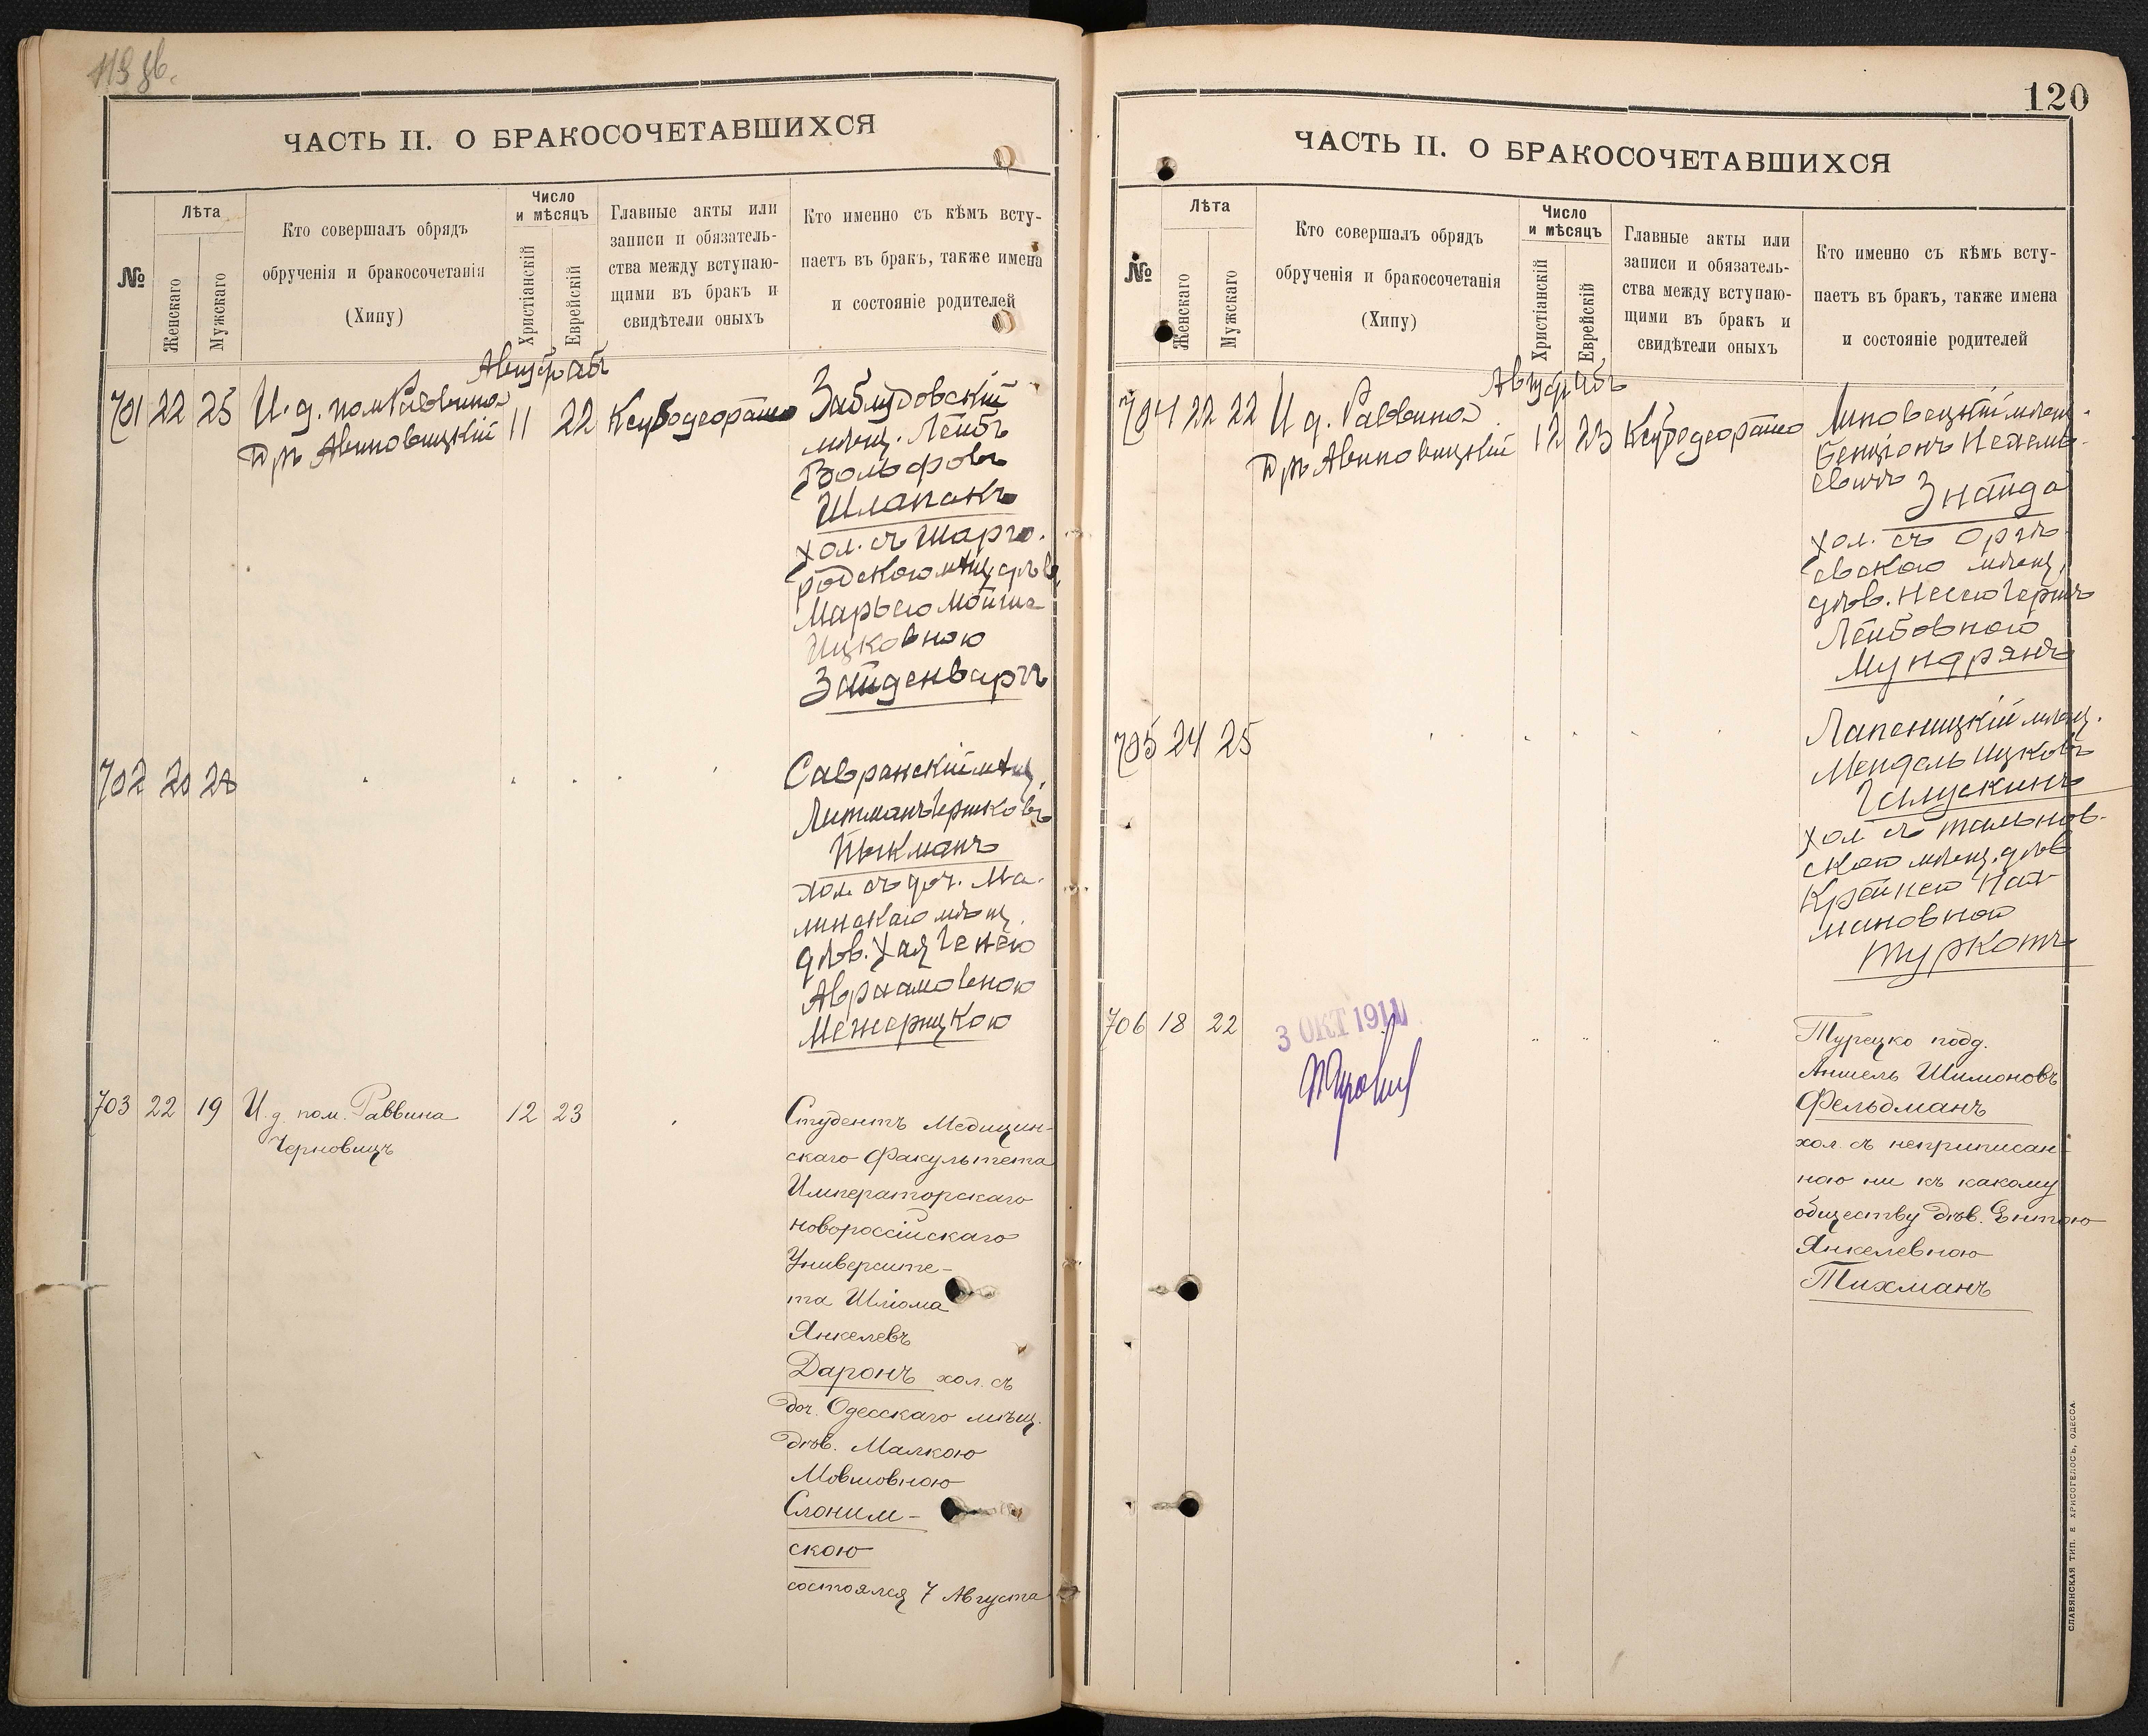 ЧАСТЬ II. О БРАКОСОЧЕТАВШИХСЯ
№
Лѣта
Женскаго
Мужскаго
Кто совершалъ обрядъ
обрученія и бракосочетанія
(Хипу)
Число
и мѣсяцъ
Христіанскій
Еврейскій
Главные акты или
записи и обязатель-
ства между вступаю-
щими въ бракъ и
свидѣтели оныхъ
Кто именно съ кѣмъ всту-
паетъ въ бракъ, также имена
и состояніе родителей
Августъ Абъ
701 22 25 И. д. пом. Раввина
Д-ръ Авиновицкій 11 22
Заблудовскій
мѣщ. Лейбъ
Вольфовъ
Шлапакъ
хол. съ Шарго-
родскою мѣщ. дѣв.
Марьею Мойше
Ицковною
Зайденваргъ
702 20 28
Савранскій мѣщ.
Литманъ Гершковъ
Пыкманъ
хол. съ доч. Ма-
линскаго мѣщ.
дѣв. Хая Генею
Авраамовною
Межерицкою
703 22 19 И. д. пом. Раввина 12 23
Черновицъ
Студентъ Медицин-
скаго Факультета
Императорскаго
Новороссійскаго
Университе-
та Шлёма
Янкелевъ
Даронъ хол. съ
доч. Одесскаго мѣщ.
дѣв. Малкою
Мовшовною
Слоним-
скою
состоялся 7 Августа
120
ЧАСТЬ II. О БРАКОСОЧЕТАВШИХСЯ
№
Лѣта
Женскаго
Мужскаго
Кто совершалъ обрядъ
обрученія и бракосочетанія
(Хипу)
Число
и мѣсяцъ
Христіанскій
Еврейскій
Главные акты или
записи и обязатель-
ства между вступаю-
щими въ бракъ и
свидѣтели оныхъ
Кто именно съ кѣмъ всту-
паетъ въ бракъ, также имена
и состояніе родителей
Августъ Абъ
704 22 22 И д. Раввина
Д-ръ Авиновицкій 12 23
Липовецкій мѣщ.
Бенціонъ Нехемь-
евичъ
Знайда
хол. съ Оргѣ-
евскою мѣщ.
дѣв.
Лейбовною
Мундрянъ
705 24 25
Лапеницкій мѣщ.
Мендель Ицковъ
Галускинъ
хол съ Тальнов-
скою мѣщ. дѣв
Крейнею Нах-
мановною
Туркотъ
706 18 22
3 ОКТ 1911
Турецко подд.
Аншель Шимоновъ
Фельдманъ
хол. съ неприписан-
ною ни къ какому
обществу дѣв. Ентою
Янкелевною
Тихманъ
СЛАВЯНСКАЯ ТИП. Е ХРИСОГЕЛОСЪ, ОДЕССА.